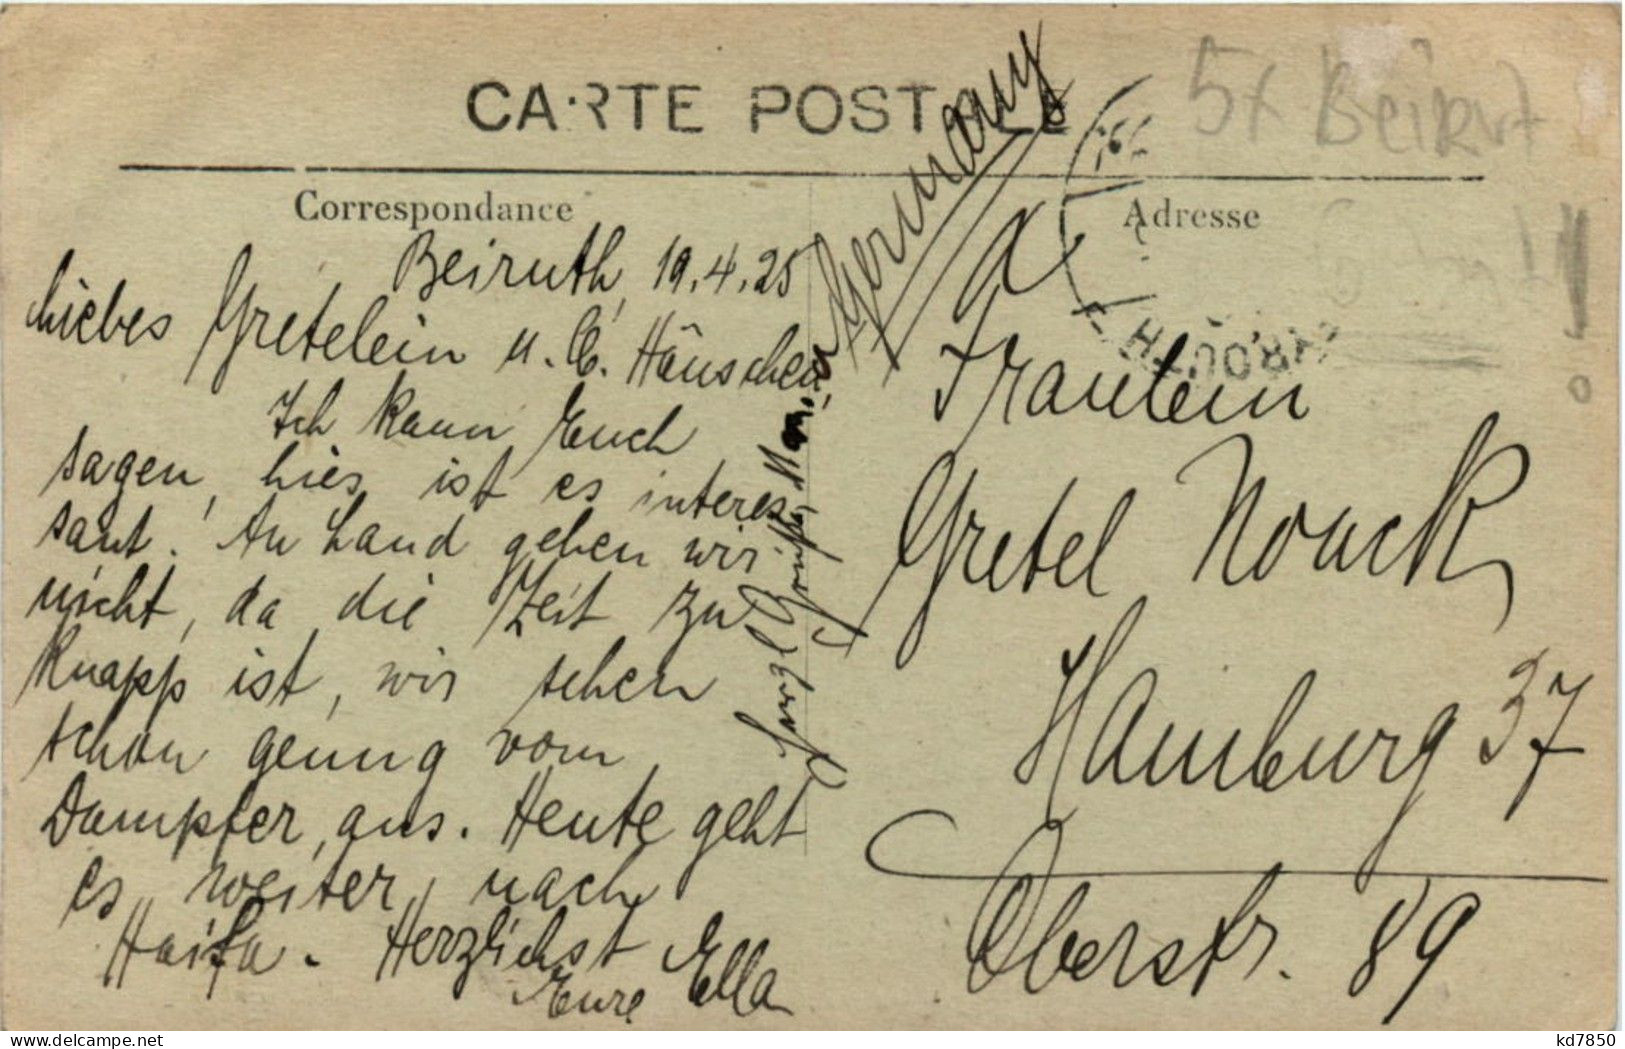 CARTE POSTALE
5x Beirut
Correspondance
Adresse
Beiruth, 19.4.25
Liebes Gretelein u. C. Häuschen,
Ich kann Euch
sagen, hier ist es interes
sant. An Land gehen wir
nicht, da die Zeit zu
knapp ist, wir sehen
schon genug vom
Dampfer, aus. Heute geht
es weiter nach
Haifa. Herzlichst
Eure Ella
Germany
Fräulein
Gretel Nonck,
Hamburg 37
Oberstr. 89
delcampe.net
kd7850